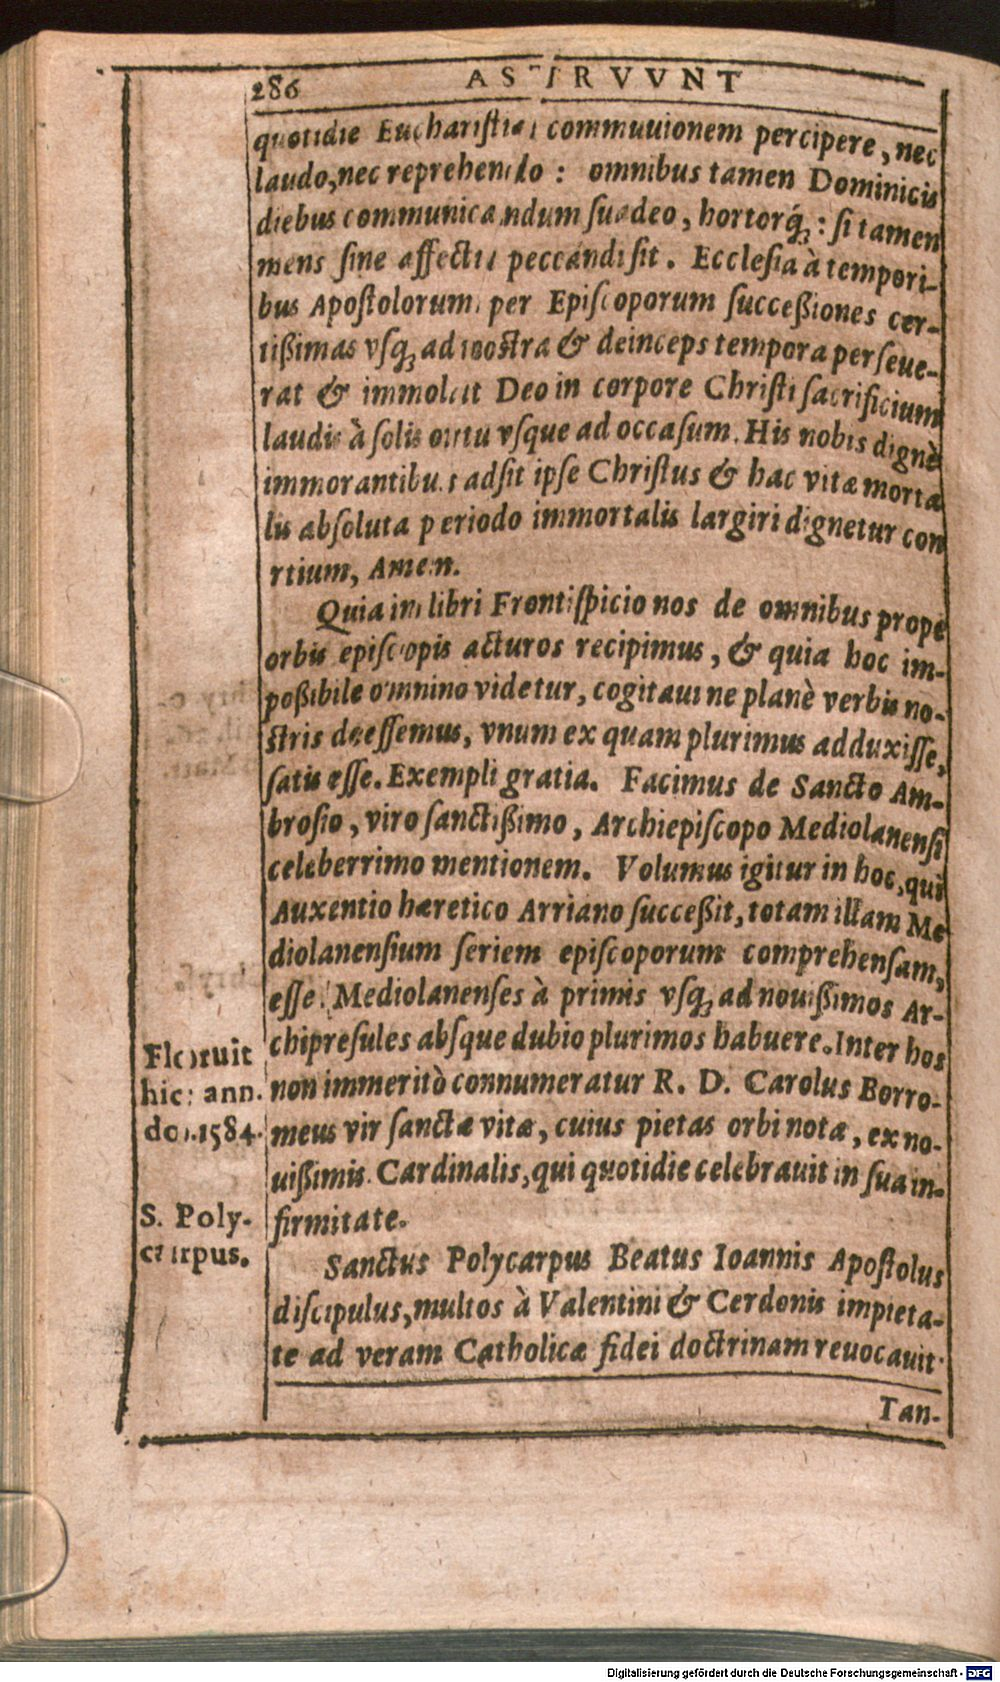 286 ASTRVVNT
quotidie Euchariſtiæ commuuionem percipere, nec
laudo, nec reprehendo : omnibus tamen Dominicis
diebus communicandum ſuadeo, hortorq́; : ſi tamen
mens ſine affectu peccandi ſit. Ecclesia à tempori-
bus Apoſtolorum per Epiſcoporum ſucceßiones cer-
tißimas vſq; ad noſtra & deinceps tempora perſeue-
rat & immolat Deo in corpore Chriſti ſacrificium
laudis à ſolis ortu vſque ad occaſum. His nobis dignè
immorantibus adſit ipſe Chriſtus & hac vitæ morta
lis abſoluta periodo immortalis largiri dignetur con
rtium, Amen.
Quia in libri Frontiſpicio nos de omnibus propè
orbis epiſcopis acturos recipimus, & quia hoc im-
poßibile omnino videtur, cogitaui ne planè verbis no-
ſtris deeſſemus, vnum ex quam plurimus adduxiſſe,
ſatis eſſe. Exempli gratia. Facimus de Sancto Am-
broſio, viro ſanctißimo, Archiepiſcopo Mediolanenſi
celeberrimo mentionem. Volumus igitur in hoc, qui
Auxentio hæretico Arriano ſucceßit, totam illam Me
diolanenſium ſeriem epiſcoporum comprehenſam,
eſſe. Mediolanenſes à primis vſq; ad nouißimos Ar-
chipreſules abſque dubio plurimos habuere. Inter hos
non immeritò connumeratur R. D. Carolus Borro-
meus vir ſanctæ vitæ, cuius pietas orbi nota, ex no-
uißimis Cardinalis, qui quotidie celebrauit in ſua in-
firmitate.
Floruit
hic ann.
do. 1584.
Sanctus Polycarpus Beatus Ioannis Apoſtolus
diſcipulus, multos à Valentini & Cerdonis impieta-
te ad veram Catholicæ fidei doctrinam reuocauit
S. Poly-
carpus.
Tan-
Digitalisierung gefördert durch die Deutsche Forschungsgemeinschaft - DFG